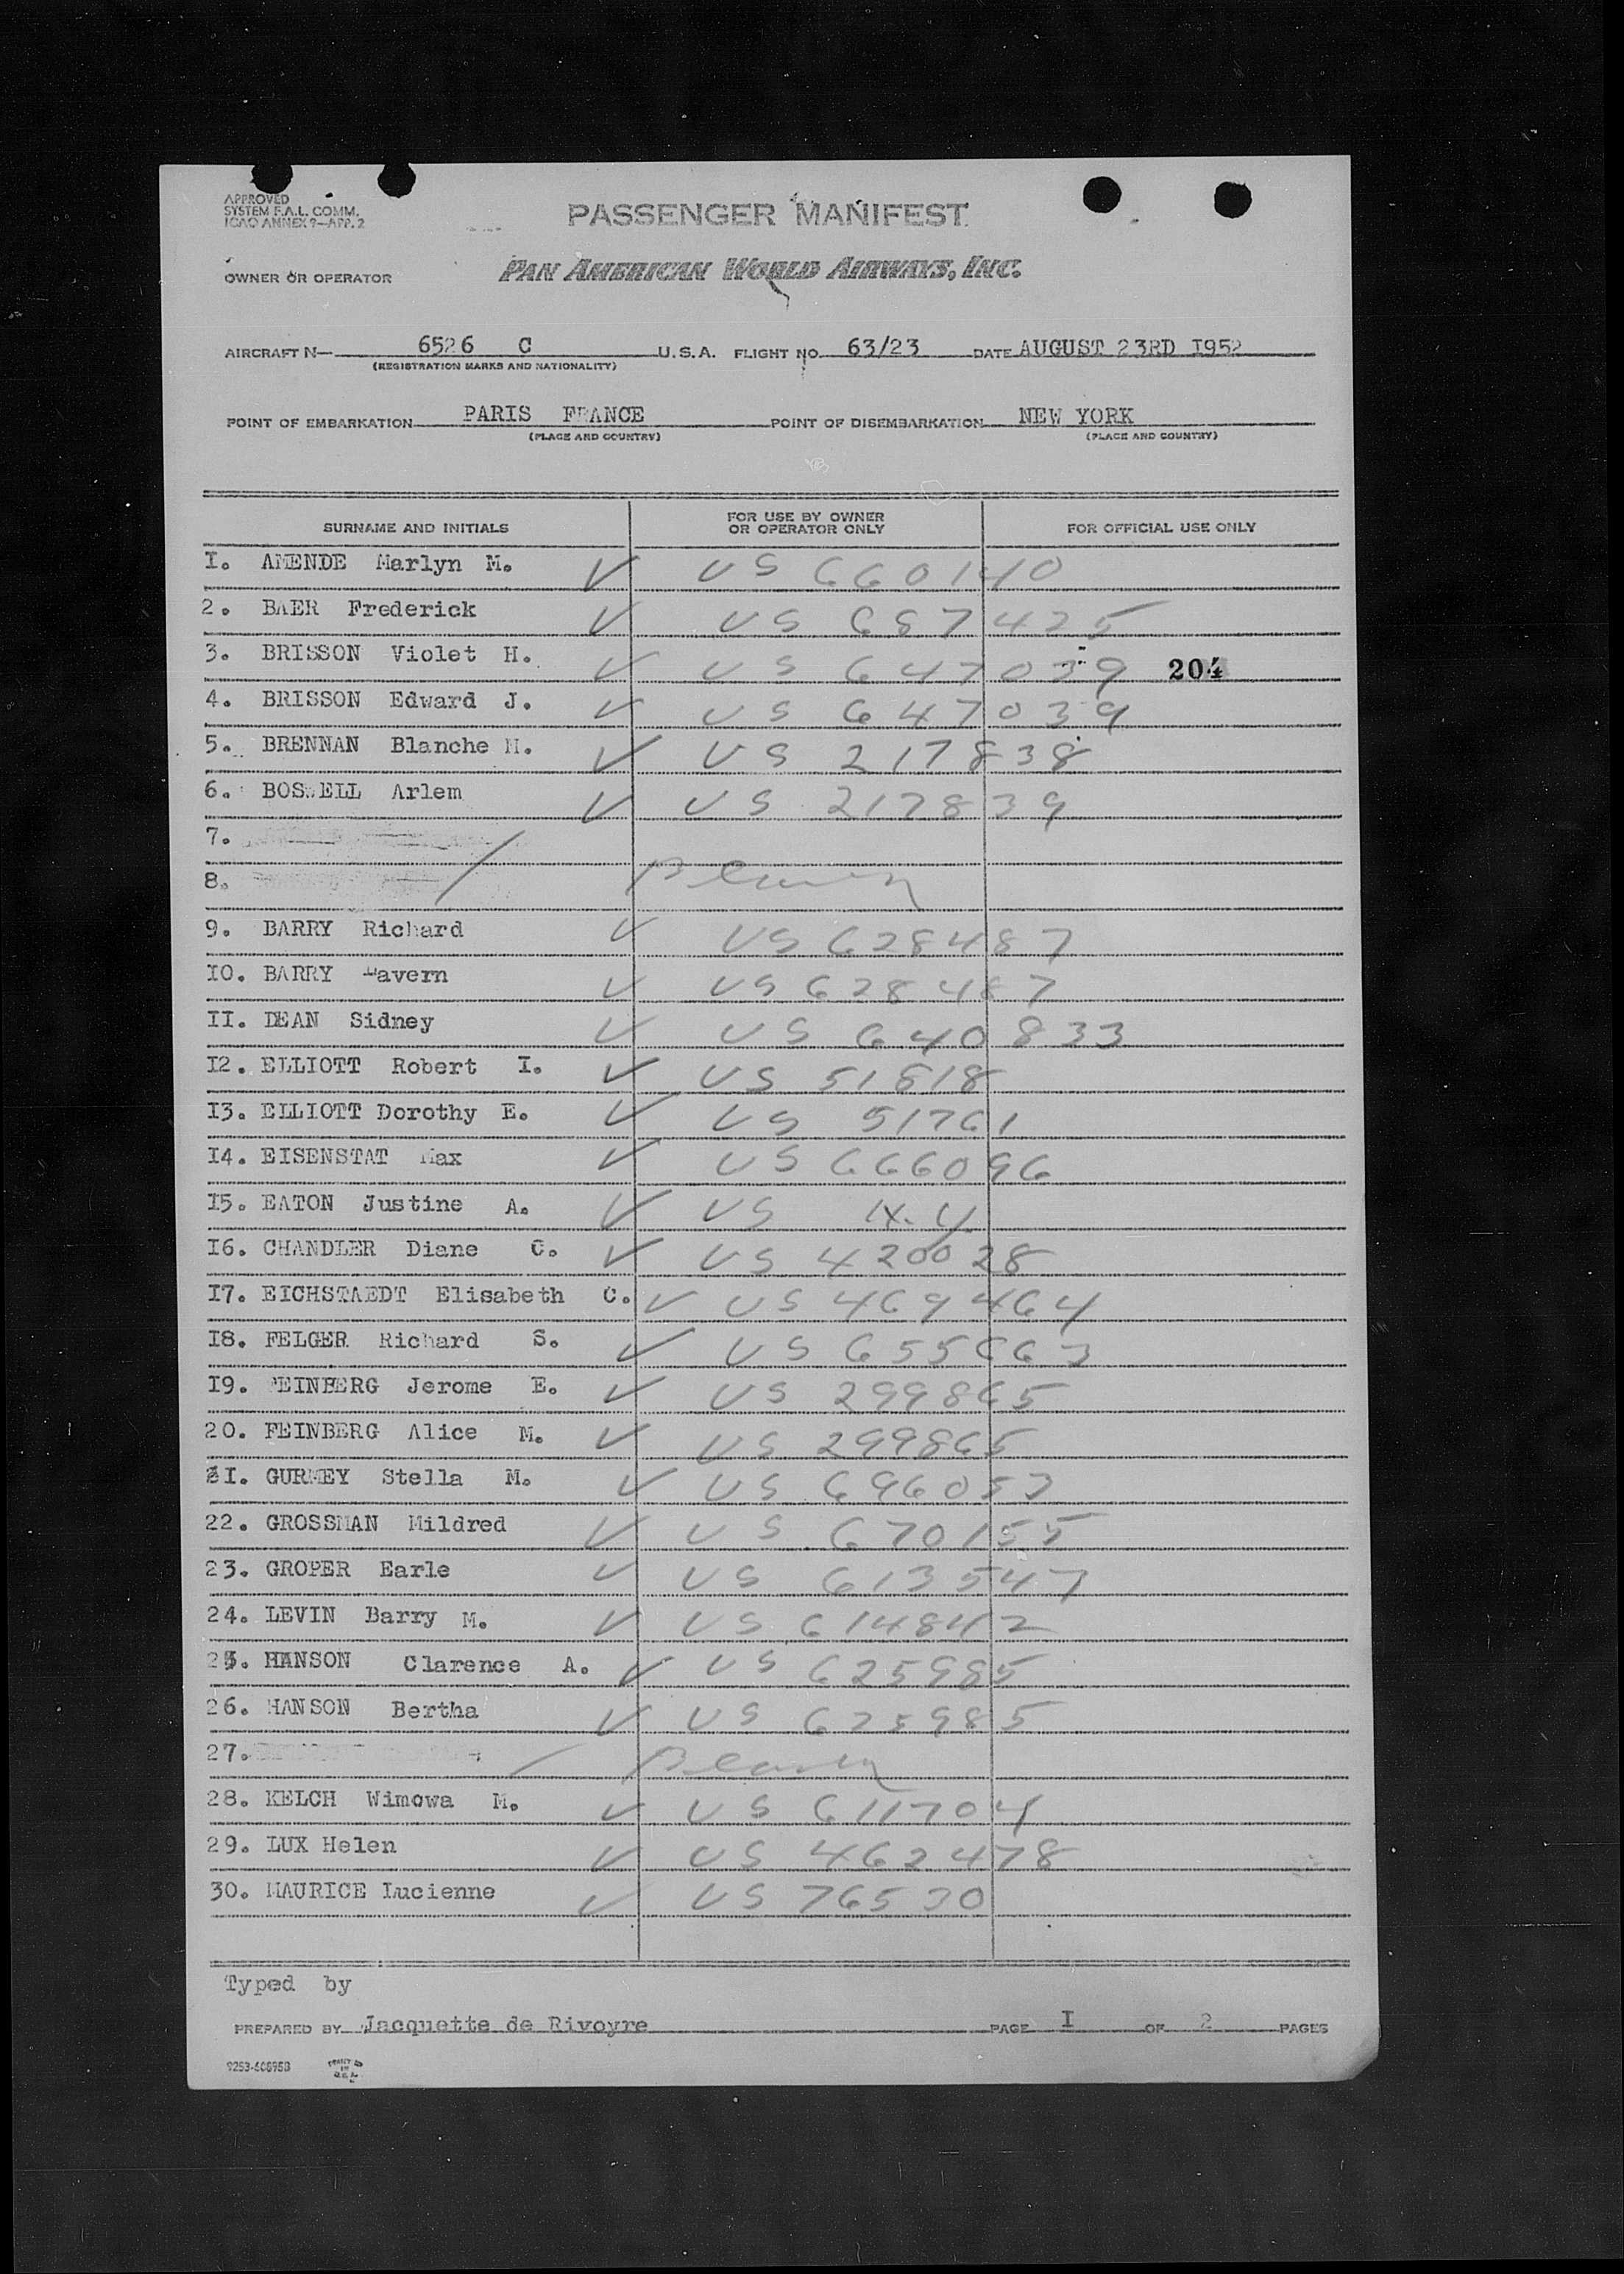 APPROVED
SYSTEM F.A.L. COMM.
ICAO ANNEX 9—APP. 2
PASSENGER MANIFEST
OWNER OR OPERATOR PAN AMERICAN WORLD AIRWAYS, INC.
AIRCRAFT N— 6526 C U.S.A. FLIGHT NO. 63/23 DATE AUGUST 23RD I952
(REGISTRATION MARKS AND NATIONALITY)
POINT OF EMBARKATION PARIS FRANCE POINT OF DISEMBARKATION NEW YORK
(PLACE AND COUNTRY) (PLACE AND COUNTRY)
SURNAME AND INITIALS FOR USE BY OWNER OR OPERATOR ONLY FOR OFFICIAL USE ONLY
I. AMENDE Marlyn M. ✓ US 660140
2. BAER Frederick ✓ US 687425
3. BRISSON Violet H. ✓ US 647039 204
4. BRISSON Edward J. ✓ US 647039
5. BRENNAN Blanche M. ✓ US 217838
6. BOSWELL Arlem ✓ US 217839
7.
8.
9. BARRY Richard ✓ US 628487
I0. BARRY Lavern ✓ US 628487
II. DEAN Sidney ✓ US 640833
I2. ELLIOTT Robert I. ✓ US 51818
I3. ELLIOTT Dorothy E. ✓ US 51761
I4. EISENSTAT Max ✓ US 666096
I5. EATON Justine A. ✓ US
I6. CHANDLER Diane C. ✓ US 420028
I7. EICHSTAEDT Elisabeth C. ✓ US 469464
I8. FELGER Richard S. ✓ US 655663
I9. FEINBERG Jerome E. ✓ US 299865
20. FEINBERG Alice M. ✓ US 299865
2I. GURNEY Stella M. ✓ US 696053
22. GROSSMAN Mildred ✓ US 670155
23. GROPER Earle ✓ US 613547
24. LEVIN Barry M. ✓ US 614842
25. HANSON Clarence A. ✓ US 625985
26. HANSON Bertha ✓ US 625985
27.
28. KELCH Wimowa M. ✓ US 611704
29. LUX Helen ✓ US 462478
30. MAURICE Lucienne ✓ US 76530
Typed by
PREPARED BY Jacquette de Rivoyre PAGE I OF 2 PAGES
9253-608958